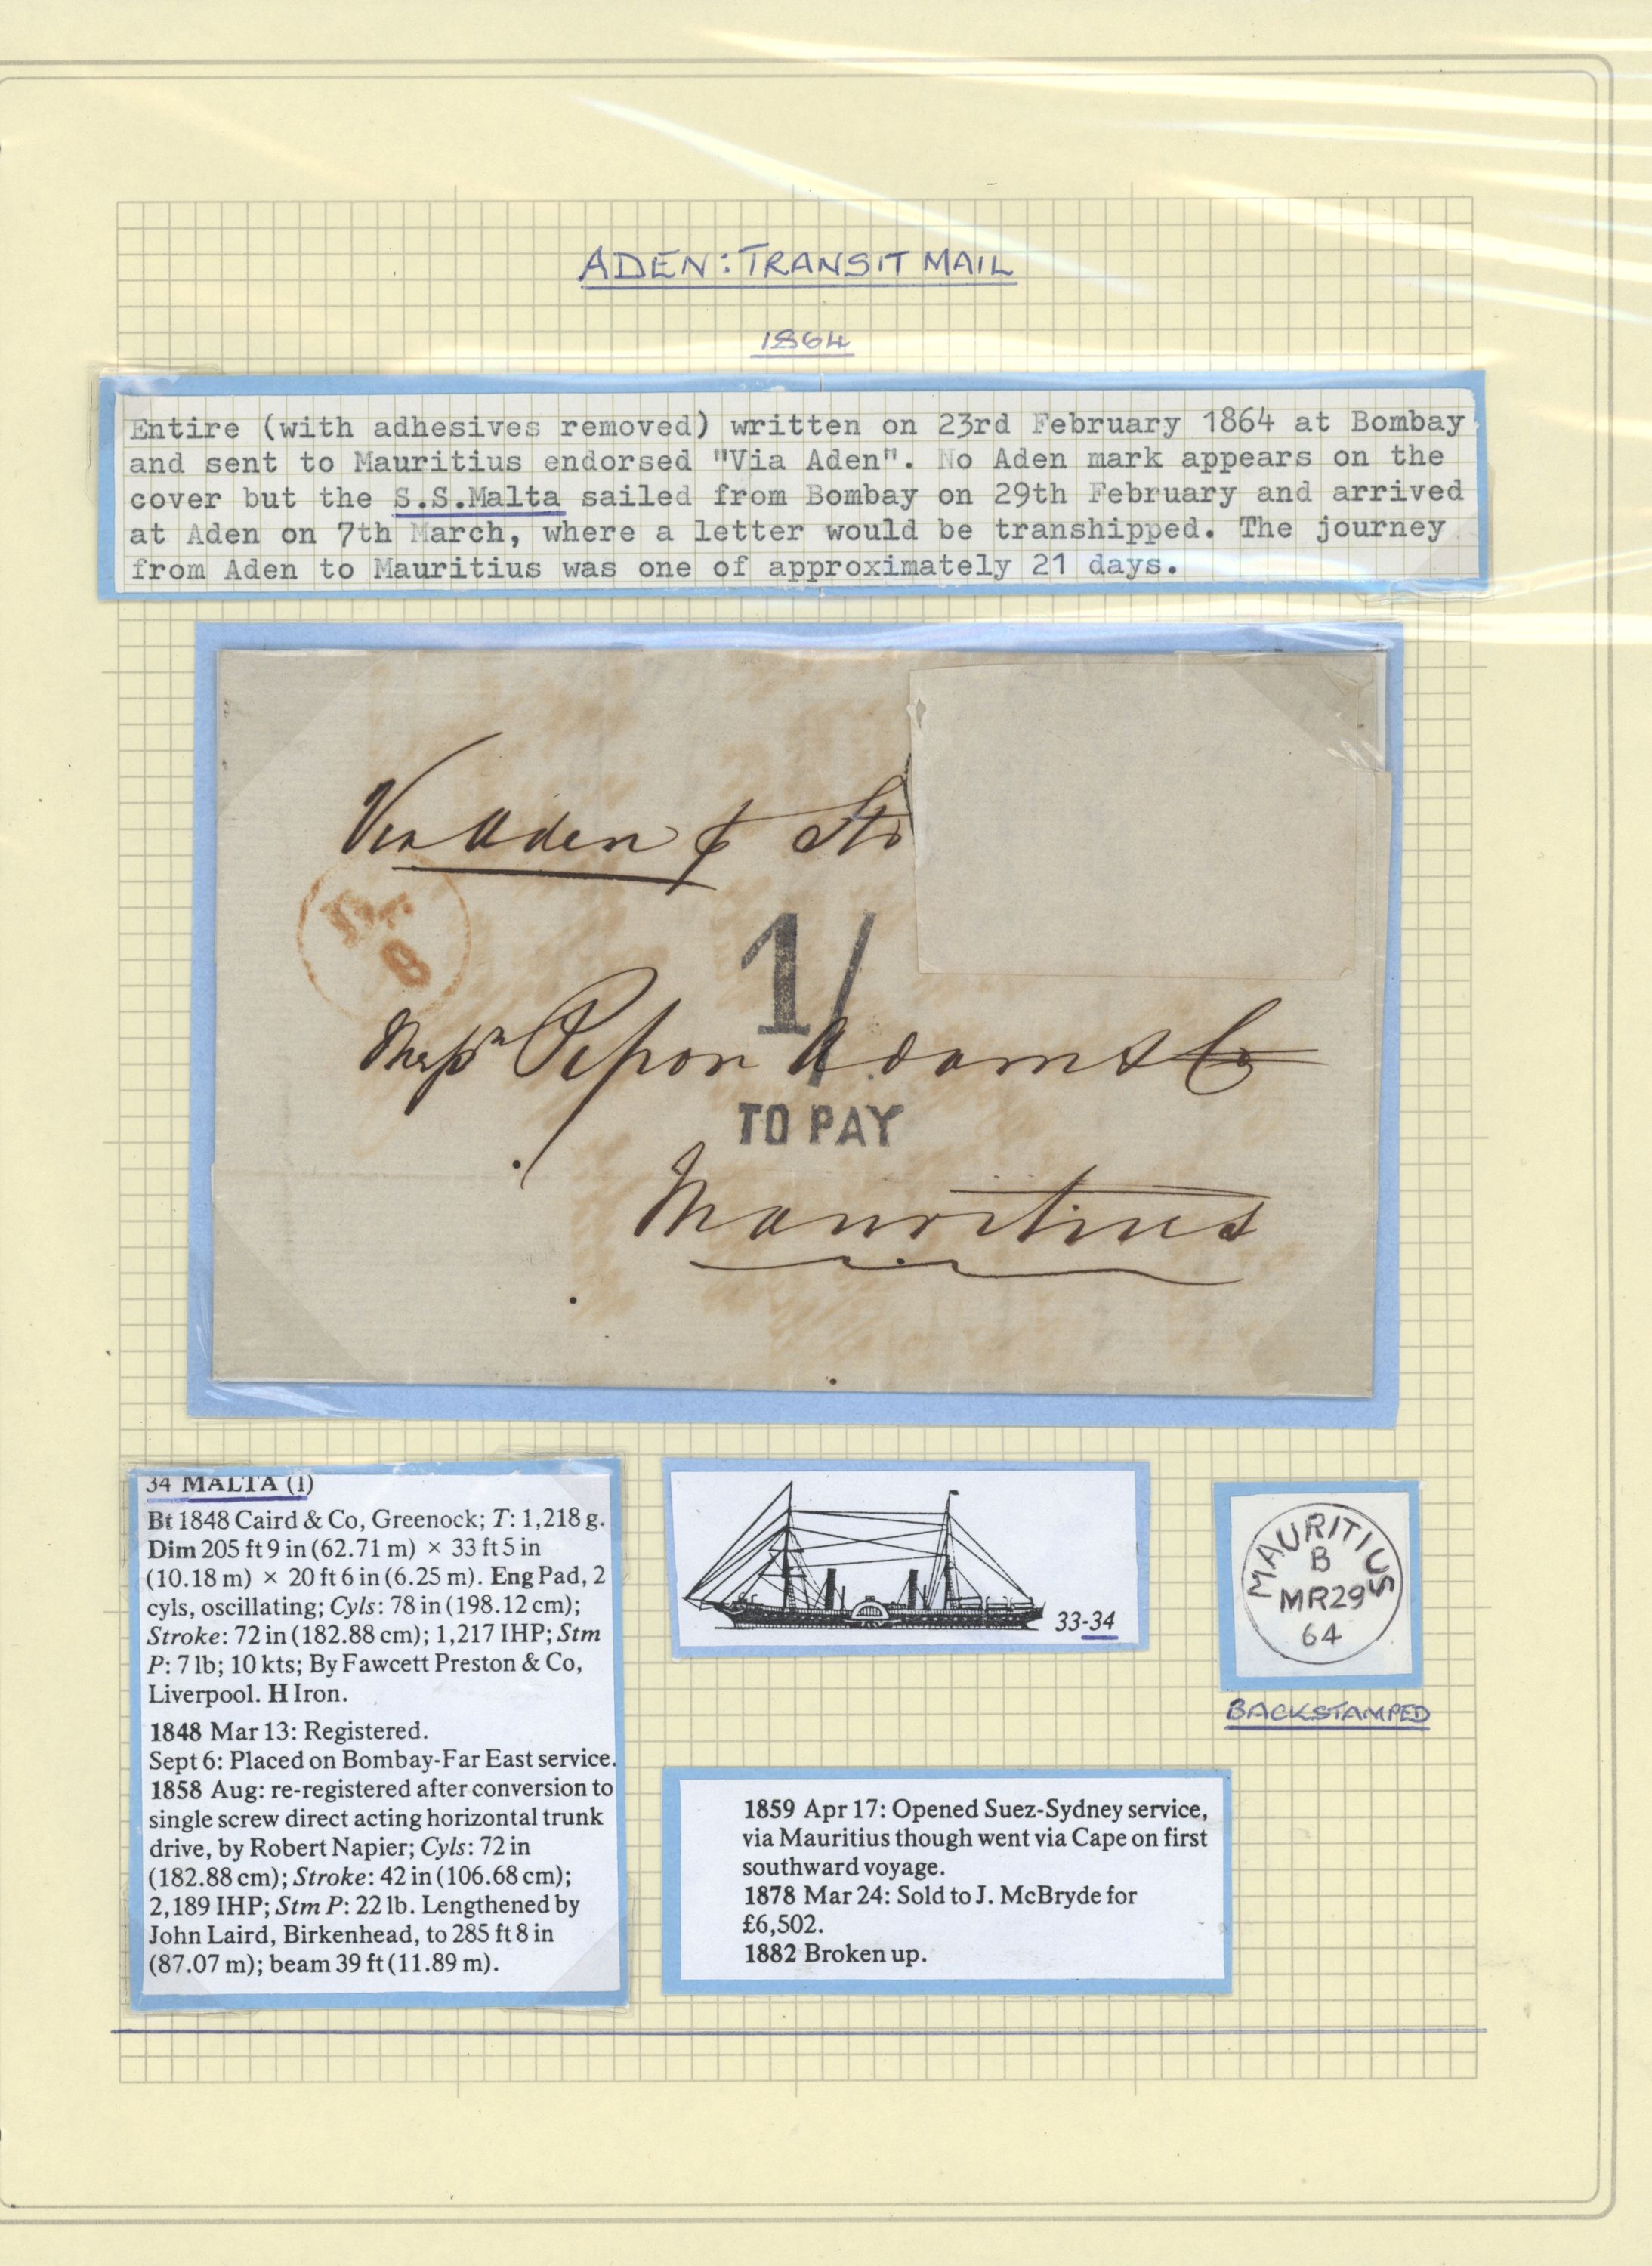 ADEN: TRANSIT MAIL
1864
Entire (with adhesives removed) written on 23rd February 1864 at Bombay
and sent to Mauritius endorsed "Via Aden". No Aden mark appears on the
cover but the S.S.Malta sailed from Bombay on 29th February and arrived
at Aden on 7th March, where a letter would be transhipped. The journey
from Aden to Mauritius was one of approximately 21 days.
Via Aden
8
1/
Messrs Pipon Adam & Co
TO PAY
Mauritius
34 MALTA (I)
Bt 1848 Caird & Co, Greenock; T: 1,218 g.
Dim 205 ft 9 in (62.71 m) × 33 ft 5 in
(10.18 m) × 20 ft 6 in (6.25 m). Eng Pad, 2
cyls, oscillating; Cyls: 78 in (198.12 cm);
Stroke: 72 in (182.88 cm); 1,217 IHP; Stm
P: 7 lb; 10 kts; By Fawcett Preston & Co,
Liverpool. H Iron.
1848 Mar 13: Registered.
Sept 6: Placed on Bombay-Far East service.
1858 Aug: re-registered after conversion to
single screw direct acting horizontal trunk
drive, by Robert Napier; Cyls: 72 in
(182.88 cm); Stroke: 42 in (106.68 cm);
2,189 IHP; Stm P: 22 lb. Lengthened by
John Laird, Birkenhead, to 285 ft 8 in
(87.07 m); beam 39 ft (11.89 m).
33-34
MAURITIUS
B
MR29
64
BACKSTAMPED
1859 Apr 17: Opened Suez-Sydney service,
via Mauritius though went via Cape on first
southward voyage.
1878 Mar 24: Sold to J. McBryde for
£6,502.
1882 Broken up.